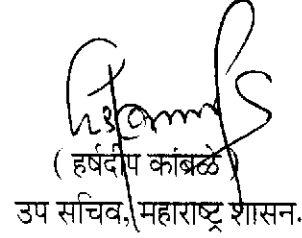 ( हर्षदीप कांबळे )
उप सचिव, महाराष्ट्र शासन.